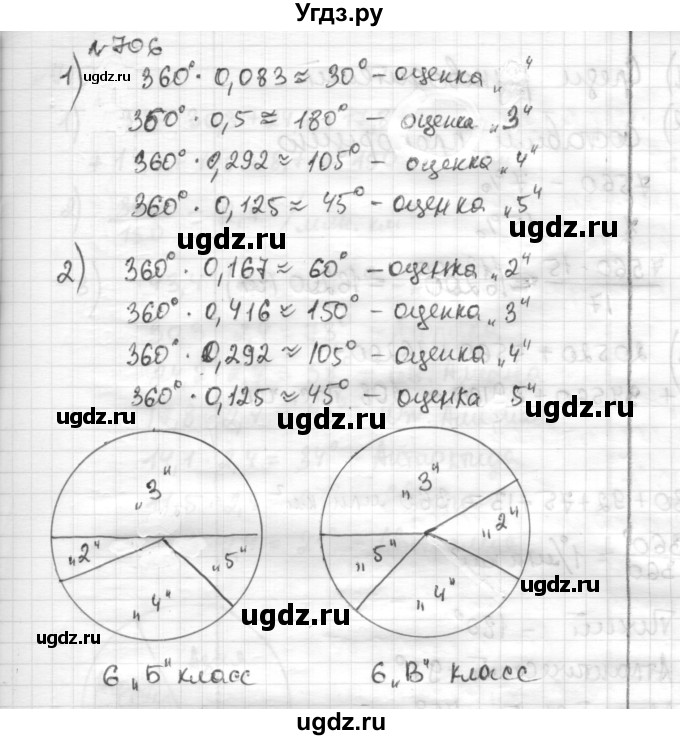 Угдз.ру
№706
1) 360° · 0,083 ≈ 30° – оценка „ “
360° · 0,5 ≈ 180° – оценка „3“
360° · 0,292 ≈ 105° – оценка „4“
360° · 0,125 ≈ 45° – оценка „5“
2) 360° · 0,167 ≈ 60° – оценка „2“
360° · 0,416 ≈ 150° – оценка „3“
360° · 0,292 ≈ 105° – оценка „4“
360° · 0,125 ≈ 45° – оценка 5“
„3“
„2“
„5“
„4“
„3“
„2“
„5“
„4“
6 „Б“ класс
6 „В“ класс
ugdz.ru
ugdz.ru
ugdz.ru
ugdz.ru
ugdz.ru
ugdz.ru
ugdz.ru
ugdz.ru
ugdz.ru
ugdz.ru
ugdz.ru